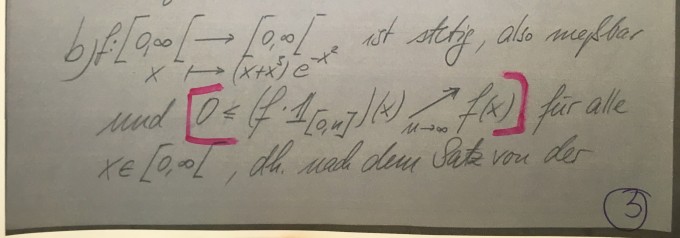 b) f: [0,∞[ → [0,∞[ ist stetig, also meßbar
x ↦ (x+x³) e^{-x²}
und [0 ≤ (f · 𝟙_{[0,n]})(x) ↗_{n→∞} f(x)] für alle
x ∈ [0,∞[, dh. nach dem Satz von der
3